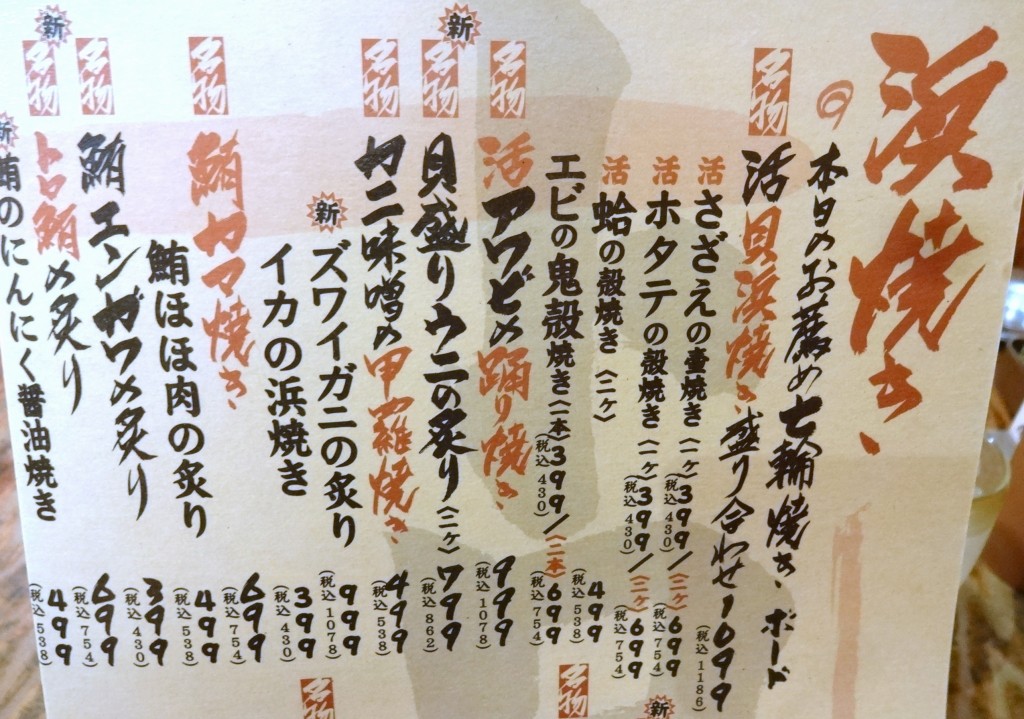 浜焼き
本日のお薦め七輪焼き、ボード
名物
活貝浜焼き、盛り合わせ1099
(税込 1186)
活さざえの壷焼き〈一ケ〉399/〈二ケ〉699
(税込 430) (税込 754)
活ホタテの殻焼き〈一ケ〉399/〈二ケ〉699
(税込 430) (税込 754)
活蛤の殻焼き〈二ケ〉499
(税込 538)
エビの鬼殻焼き〈一本〉399/〈二本〉699
(税込 430) (税込 754)
名物
活アワビの踊り焼き、999
(税込 1078)
新
名物
貝盛りウニの炙り〈二ケ〉799
(税込 862)
名物
カニ味噌の甲羅焼き、499
(税込 538)
新
ズワイガニの炙り 999
(税込 1078)
イカの浜焼き 399
(税込 430)
名物
鮪カマ焼き、699
(税込 754)
鮪ほほ肉の炙り 499
(税込 538)
名物
鮪エンガワの炙り 399
(税込 430)
新
名物
トロ鮪の炙り 699
(税込 754)
新
鮪のにんにく醤油焼き 499
(税込 538)
名物
新
名物